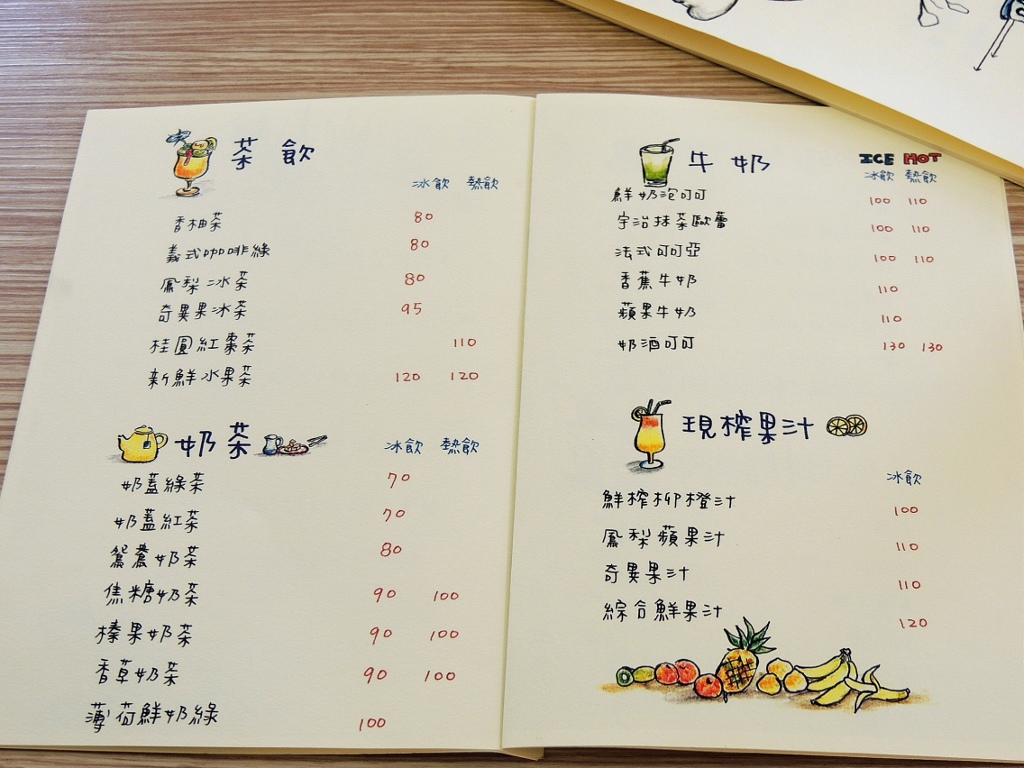 茶飲
冰飲 熱飲
香柚茶 80
義式咖啡綠 80
鳳梨冰茶 80
奇異果冰茶 95
桂圓紅棗茶 110
新鮮水果茶 120 120
奶茶 冰飲 熱飲
奶蓋綠茶 70
奶蓋紅茶 70
鴛鴦奶茶 80
焦糖奶茶 90 100
榛果奶茶 90 100
香草奶茶 90 100
薄荷鮮奶綠 100
牛奶 ICE HOT
冰飲 熱飲
鮮奶泡可可 100 110
宇治抹茶歐蕾 100 110
法式可可亞 100 110
香蕉牛奶 110
蘋果牛奶 110
奶酒可可 130 130
現榨果汁
冰飲
鮮榨柳橙汁 100
鳳梨蘋果汁 110
奇異果汁 110
綜合鮮果汁 120